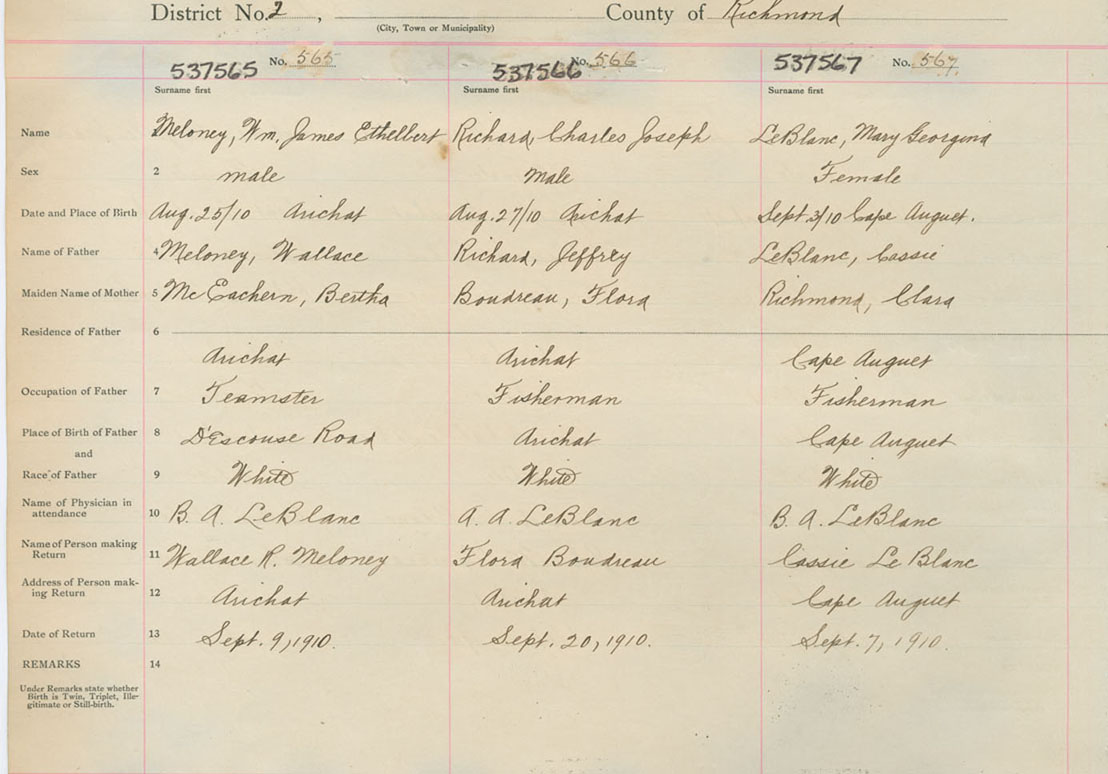 District No. 2 , County of Richmond
(City, Town or Municipality)
537565 No. 565 537566 No. 566 537567 No. 567
Surname first Surname first Surname first
Name Meloney, Wm. James Ethelbert Richard, Charles Joseph LeBlanc, Mary Georgina
Sex 2 male Male Female
Date and Place of Birth Aug. 25/10 Arichat Aug. 27/10 Arichat Sept. 3/10 Cape Auguet.
Name of Father 4 Meloney, Wallace Richard, Jeffrey LeBlanc, Cassie
Maiden Name of Mother 5 McEachern, Bertha Boudreau, Flora Richmond, Clara
Residence of Father 6
Arichat Arichat Cape Auguet
Occupation of Father 7 Teamster Fisherman Fisherman
Place of Birth of Father 8 D'Escouse Road Arichat Cape Auguet
and
Race of Father 9 White White White
Name of Physician in
attendance 10 B. A. LeBlanc A. A. LeBlanc B. A. LeBlanc
Name of Person making
Return 11 Wallace R. Meloney Flora Boudreau Cassie LeBlanc
Address of Person mak-
ing Return 12 Arichat Arichat Cape Auguet
Date of Return 13 Sept. 9, 1910. Sept. 20, 1910. Sept. 7, 1910.
REMARKS 14
Under Remarks state whether
Birth is Twin, Triplet, Ille-
gitimate or Still-birth.